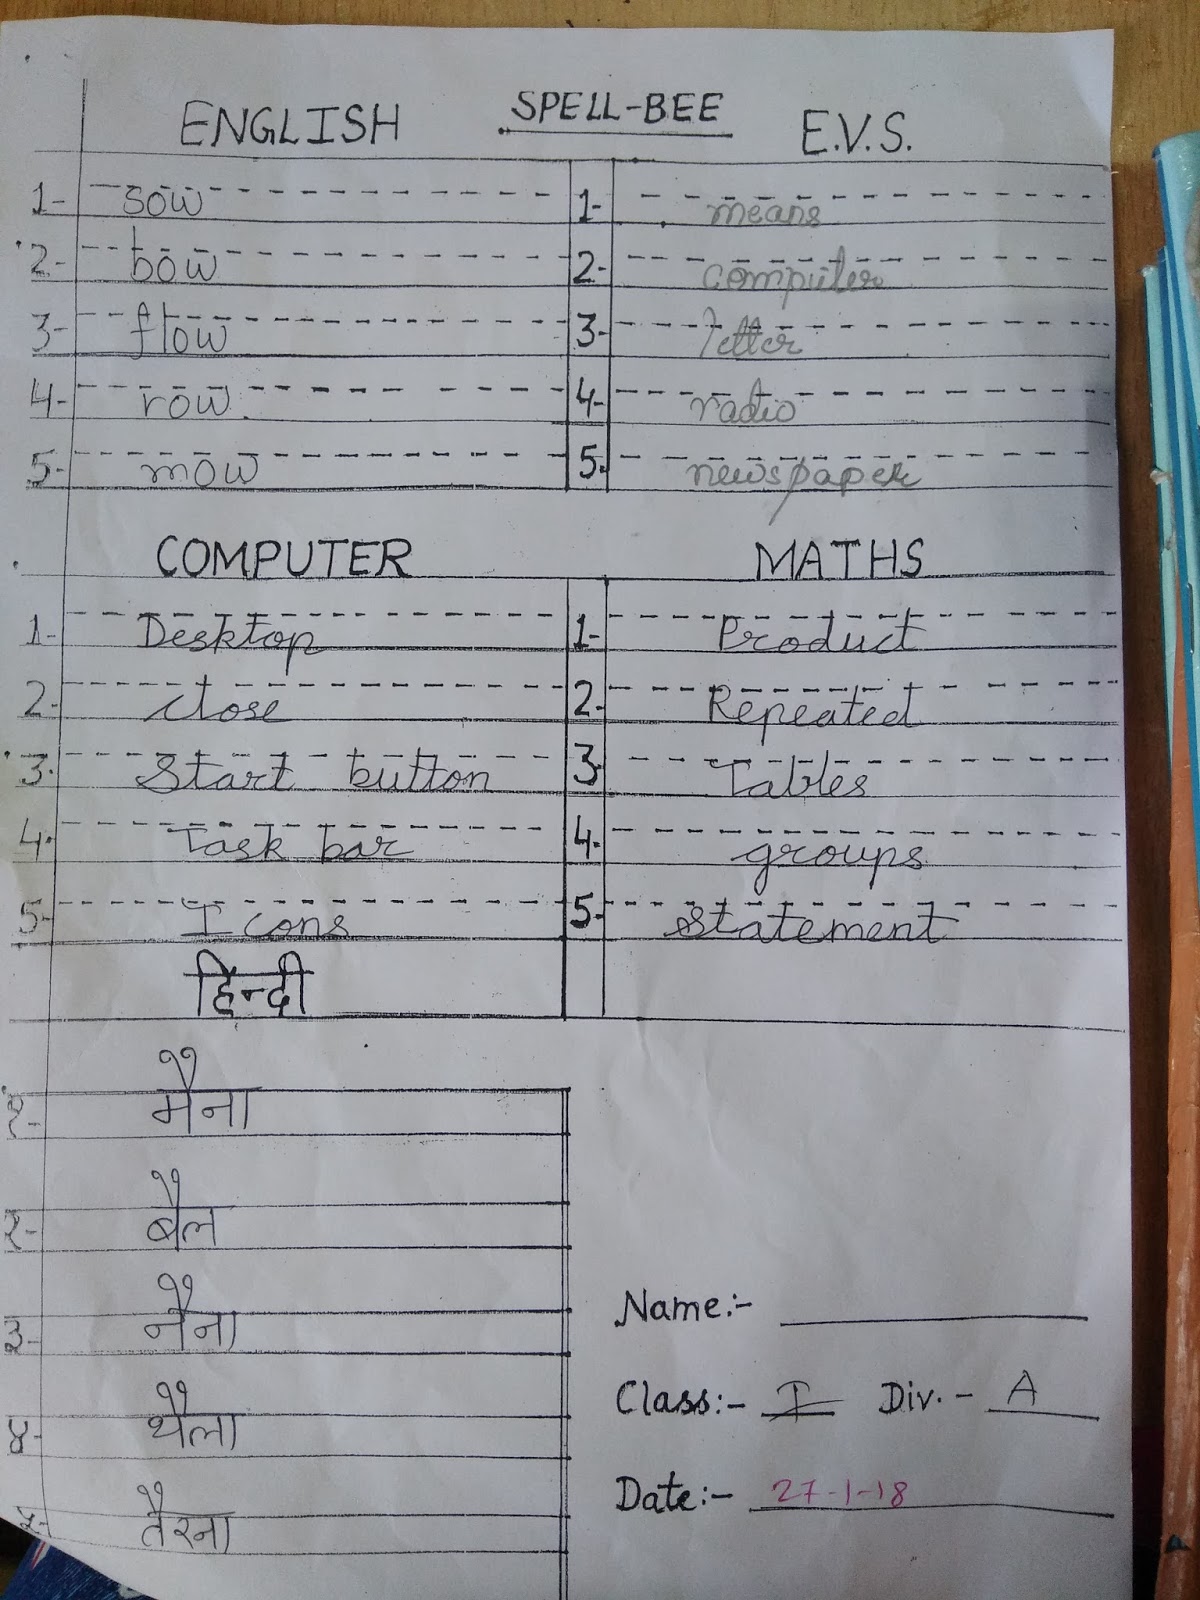 SPELL-BEE
ENGLISH E.V.S.
1- sow 1- means
2- bow 2- computer
3- flow 3- letter
4- row 4- radio
5- mow 5. newspaper
COMPUTER MATHS
1- Desktop 1- Product
2- close 2. Repeated
3. Start button 3. Tables
4. Task bar 4. groups
5- Icons 5. Statement
हिन्दी
१- मैना
२- बैल
३- नैना
४- थैला
५- तैरना
Name:-
Class:- I Div.- A
Date:- 27-1-18